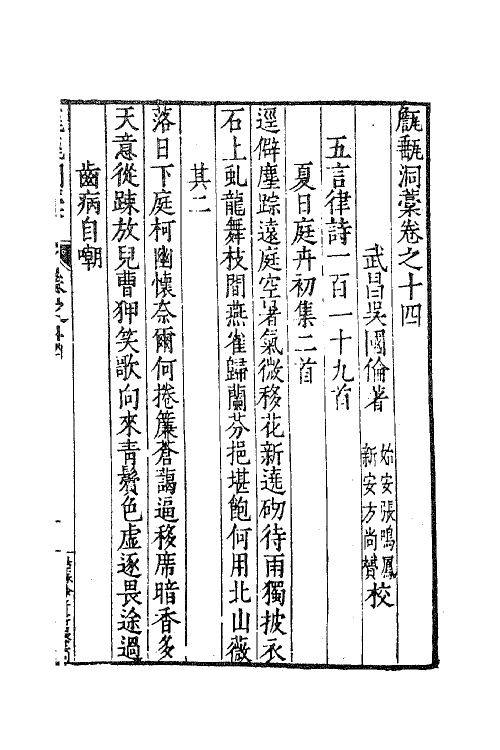 甔甀洞藁卷之十四
武昌吳國倫著 始安張鳴鳳 新安方尚贇 校
五言律詩一百一十九首
夏日庭卉初集二首
逕僻塵踪遠庭空暑氣微移花新遶砌待雨獨披衣
石上虬龍舞枝間燕雀歸蘭芬挹堪飽何用北山薇
其二
落日下庭柯幽懷奈爾何捲簾蒼藹逼移席暗香多
天意從踈放兒曹狎笑歌向來青鬢色虛逐畏途過
齒病自嘲